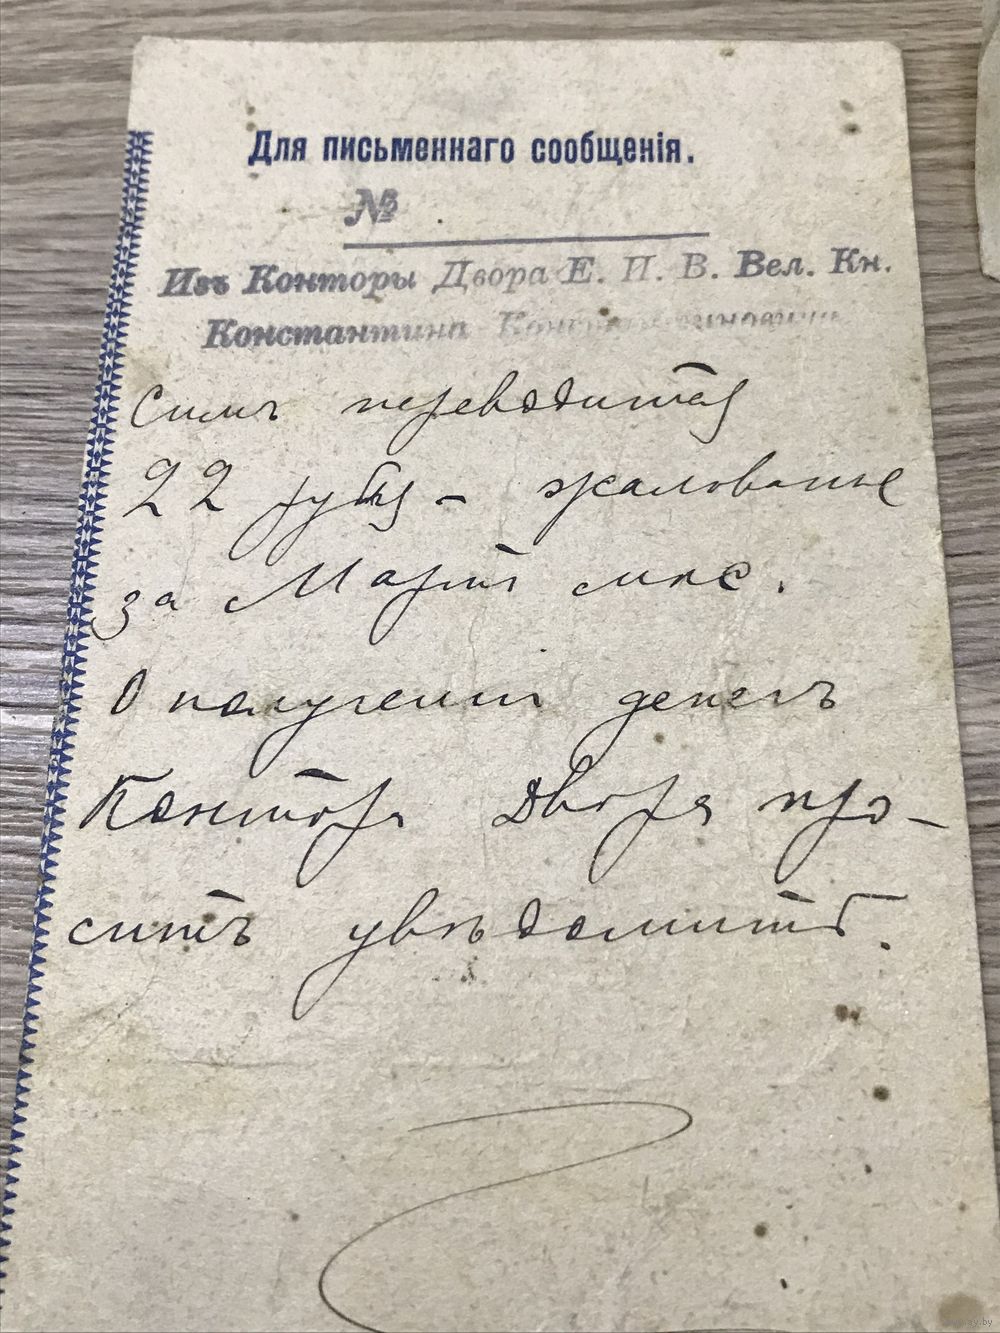 Для письменнаго сообщенія.
№
Изъ Конторы Двора Е. И. В. Вел. Кн.
Константина Константиновича
Симъ переводится
22 рубля – жалованье
за Мартъ мѣс.
О полученіи денегъ
Контора Двора про-
ситъ увѣдомить.